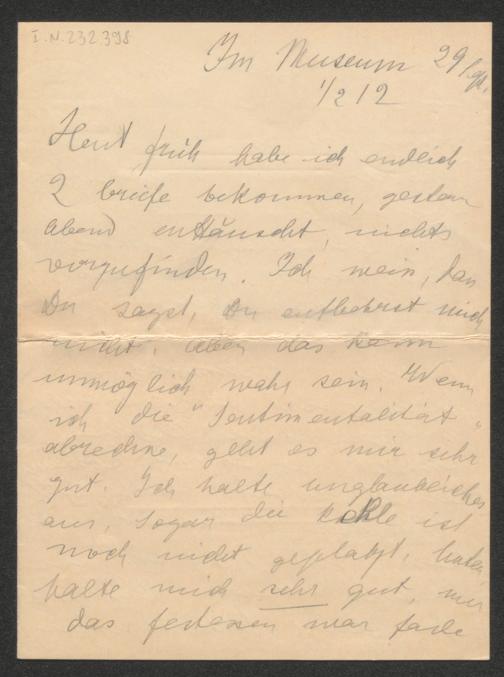 I.N. 232.398
Im Museum 29/
1/2 12
Heut früh habe ich endlich
2 briefe bekommen, gestern
abend enttäuscht, nichts
vorzufinden. Ich wein, dan
Du sagst, Du entbehrst mich
nicht, aber das kann
unmöglich wahr sein. Wenn
ich die "Sentimentalität"
abrechne, geht es mir sehr
gut. Ich halte unglaubliches
aus, sogar die ist
noch nicht geplatzt,
halte mich sehr gut, nur
das festessen war fade